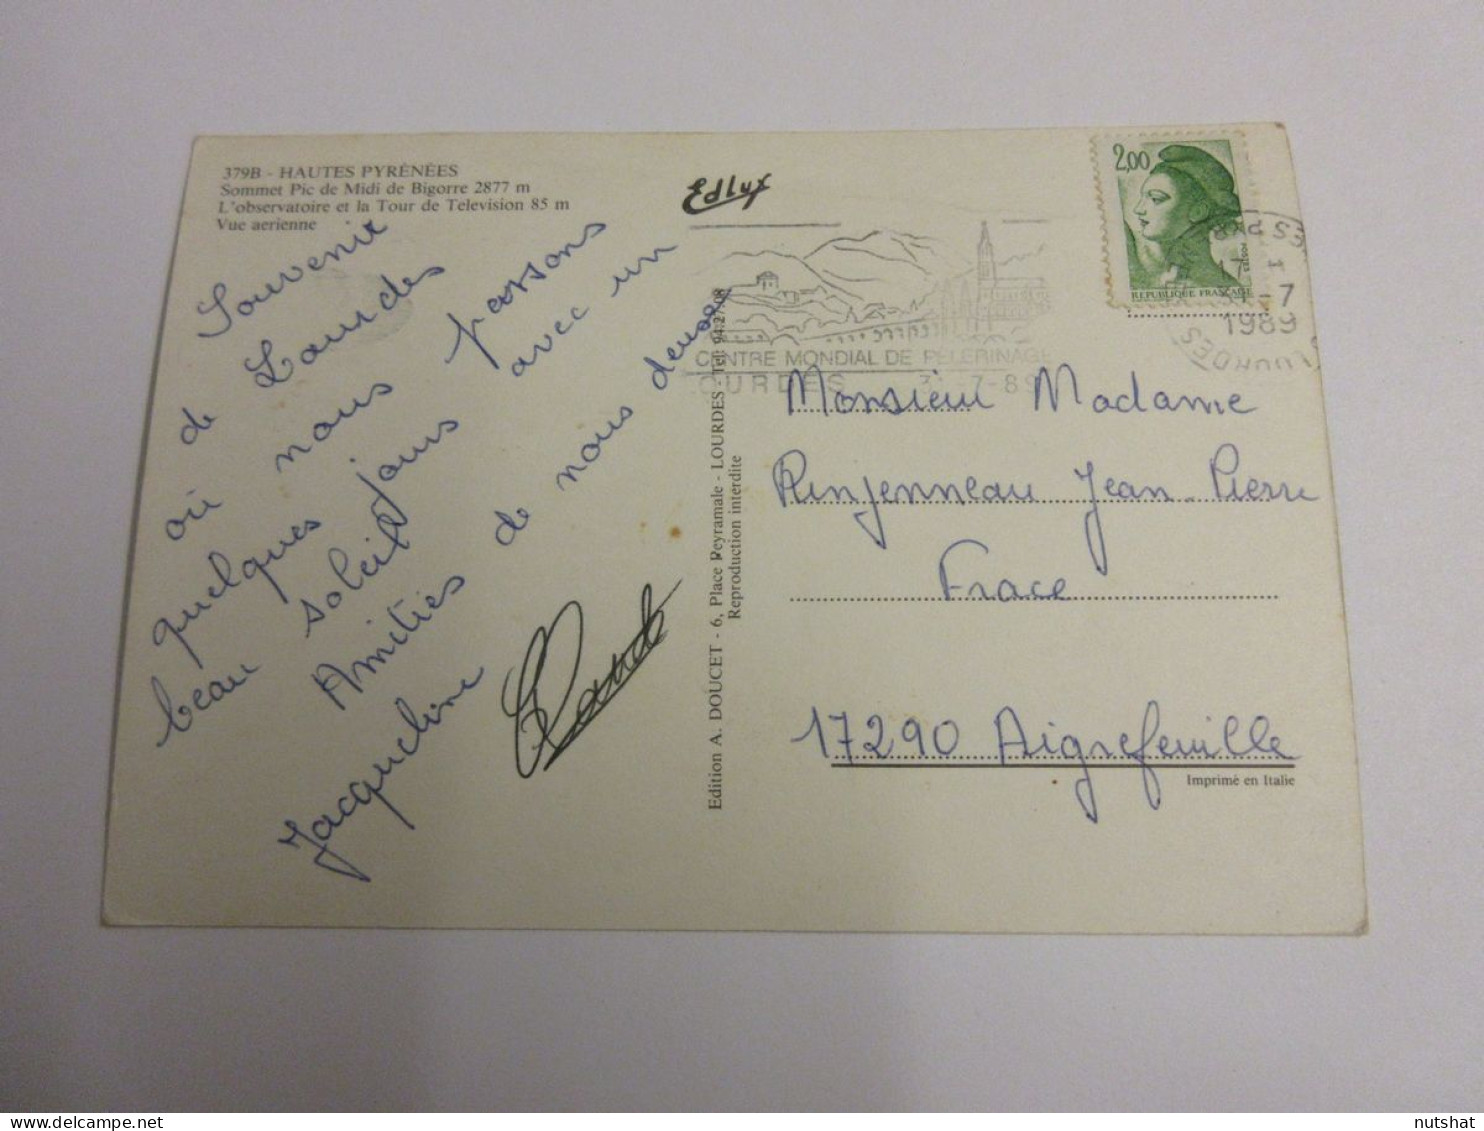 379B - HAUTES PYRÉNÉES
Sommet Pic de Midi de Bigorre 2877 m
L'observatoire et la Tour de Television 85 m
Vue aerienne
Souvenir
de Lourdes
où nous passons
quelques jours avec un
beau soleil
Amitiés de nous deux
Jacqueline
Edlux
Edition A. DOUCET - 6, Place Peyramale - LOURDES - Tél. 94.27.08
Reproduction interdite
CENTRE MONDIAL DE PELERINAGE
LOURDES 31-7-89
2,00
REPUBLIQUE FRANÇAISE
1989
LOURDES
Monsieur Madame
Jean-Pierre
Frace
17290 Aigrefeuille
Imprimé en Italie
nutshat